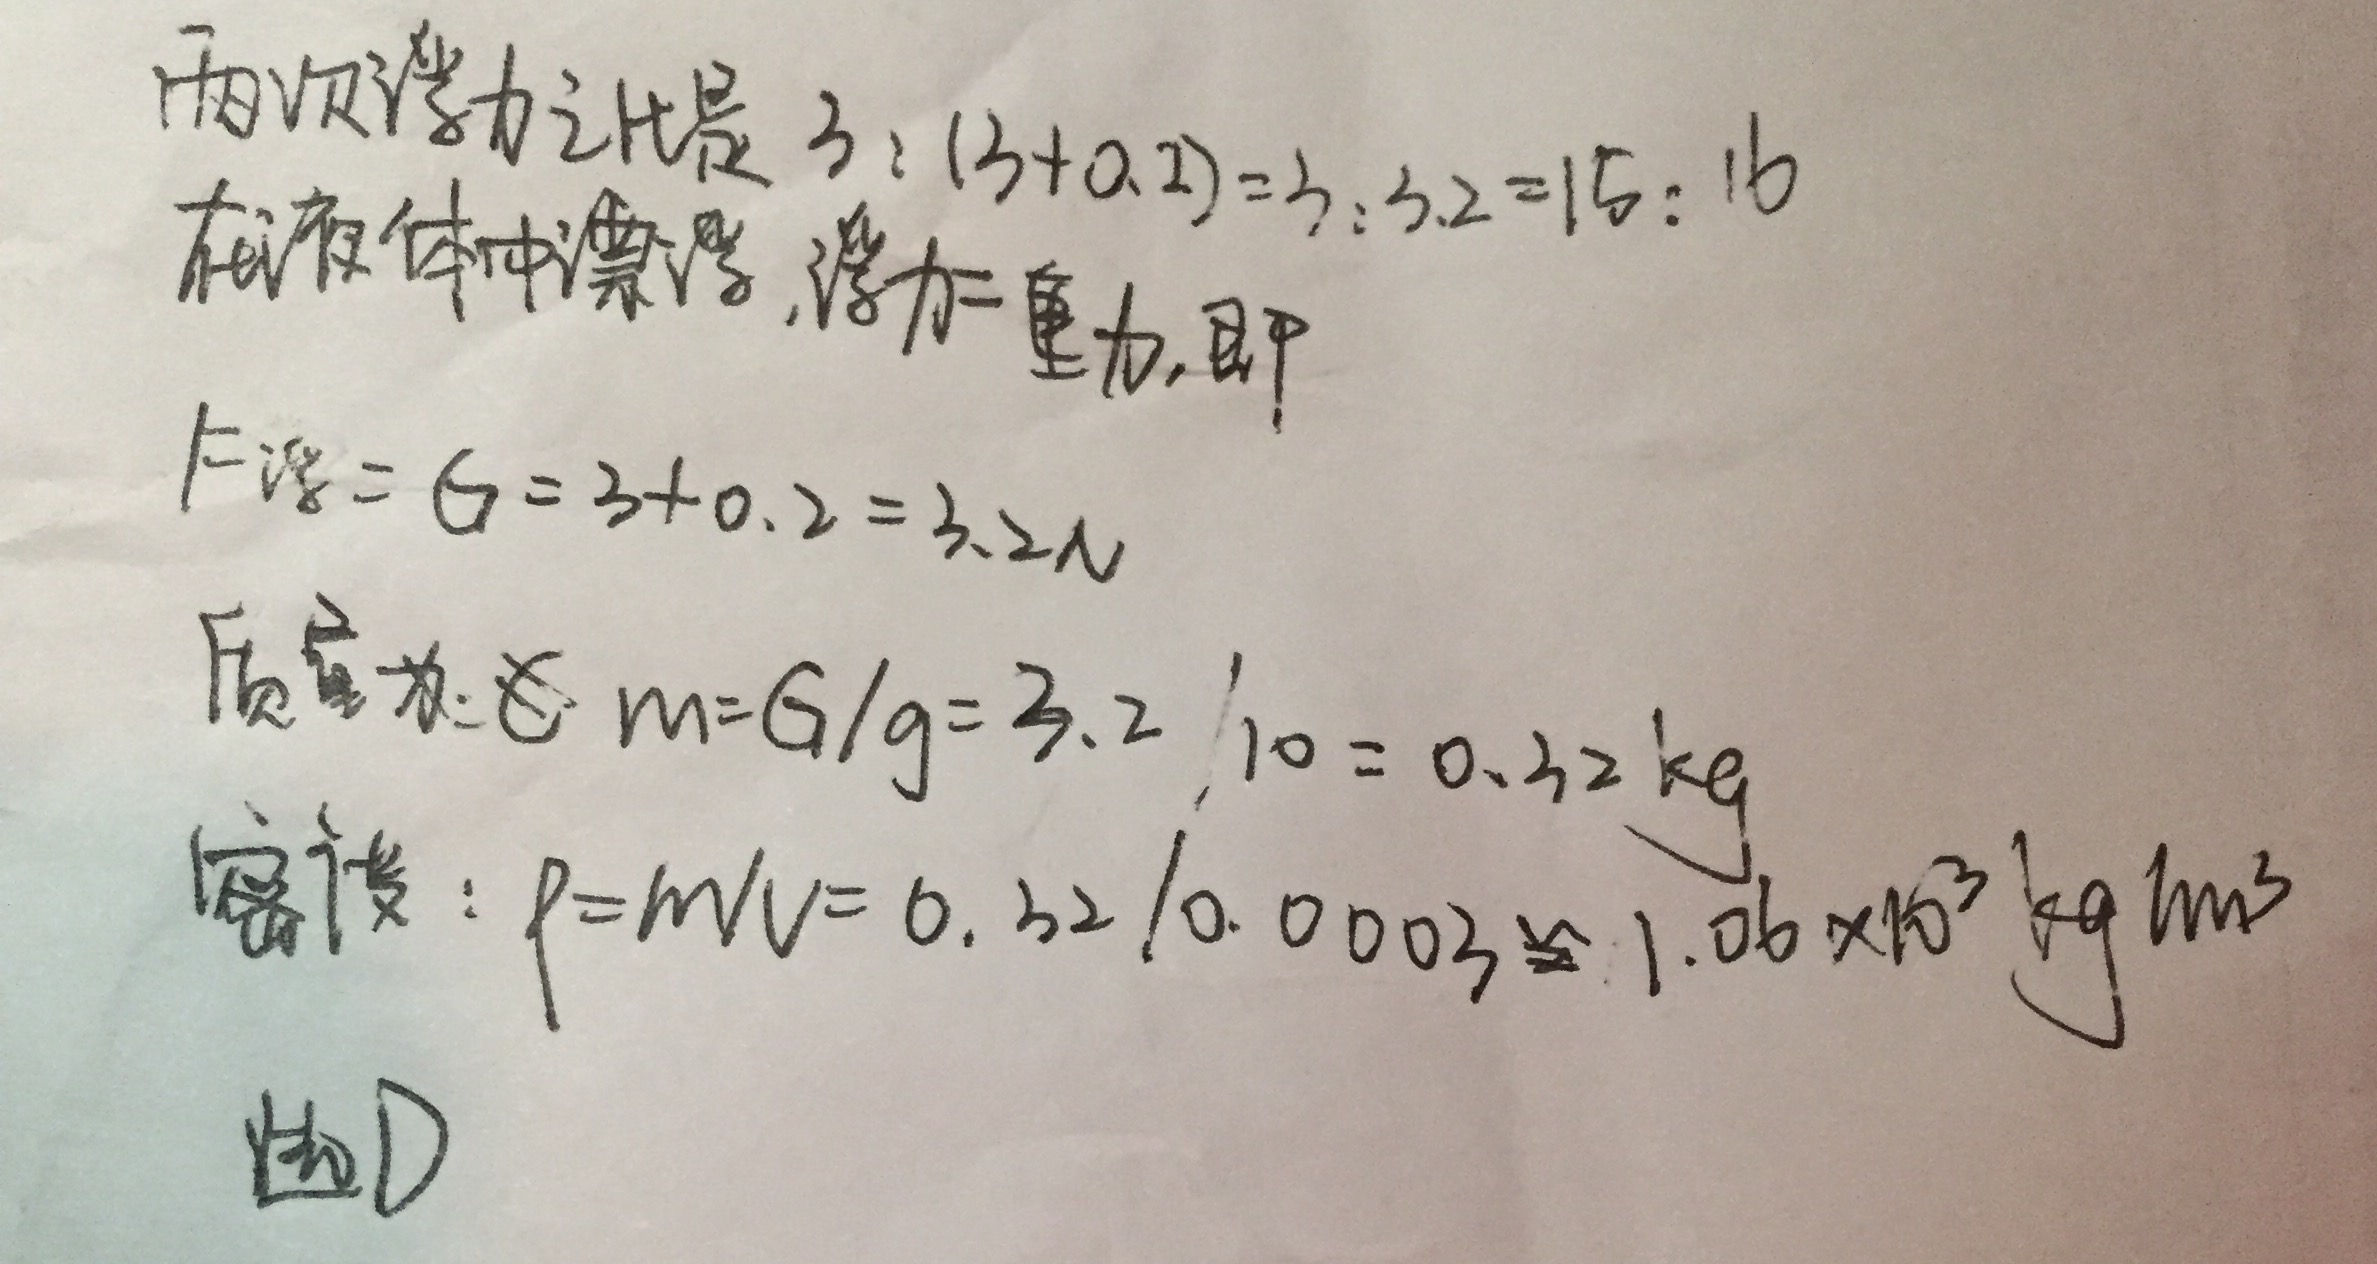 两次浮力之比是 3:(3+0.2)=3:3.2=15:16
在液体中漂浮,浮力=重力,即
F浮=G=3+0.2=3.2N
质量为: m=G/g=3.2/10=0.32kg
密度:ρ=m/V=0.32/0.0003≈1.06×10³kg/m³
选D